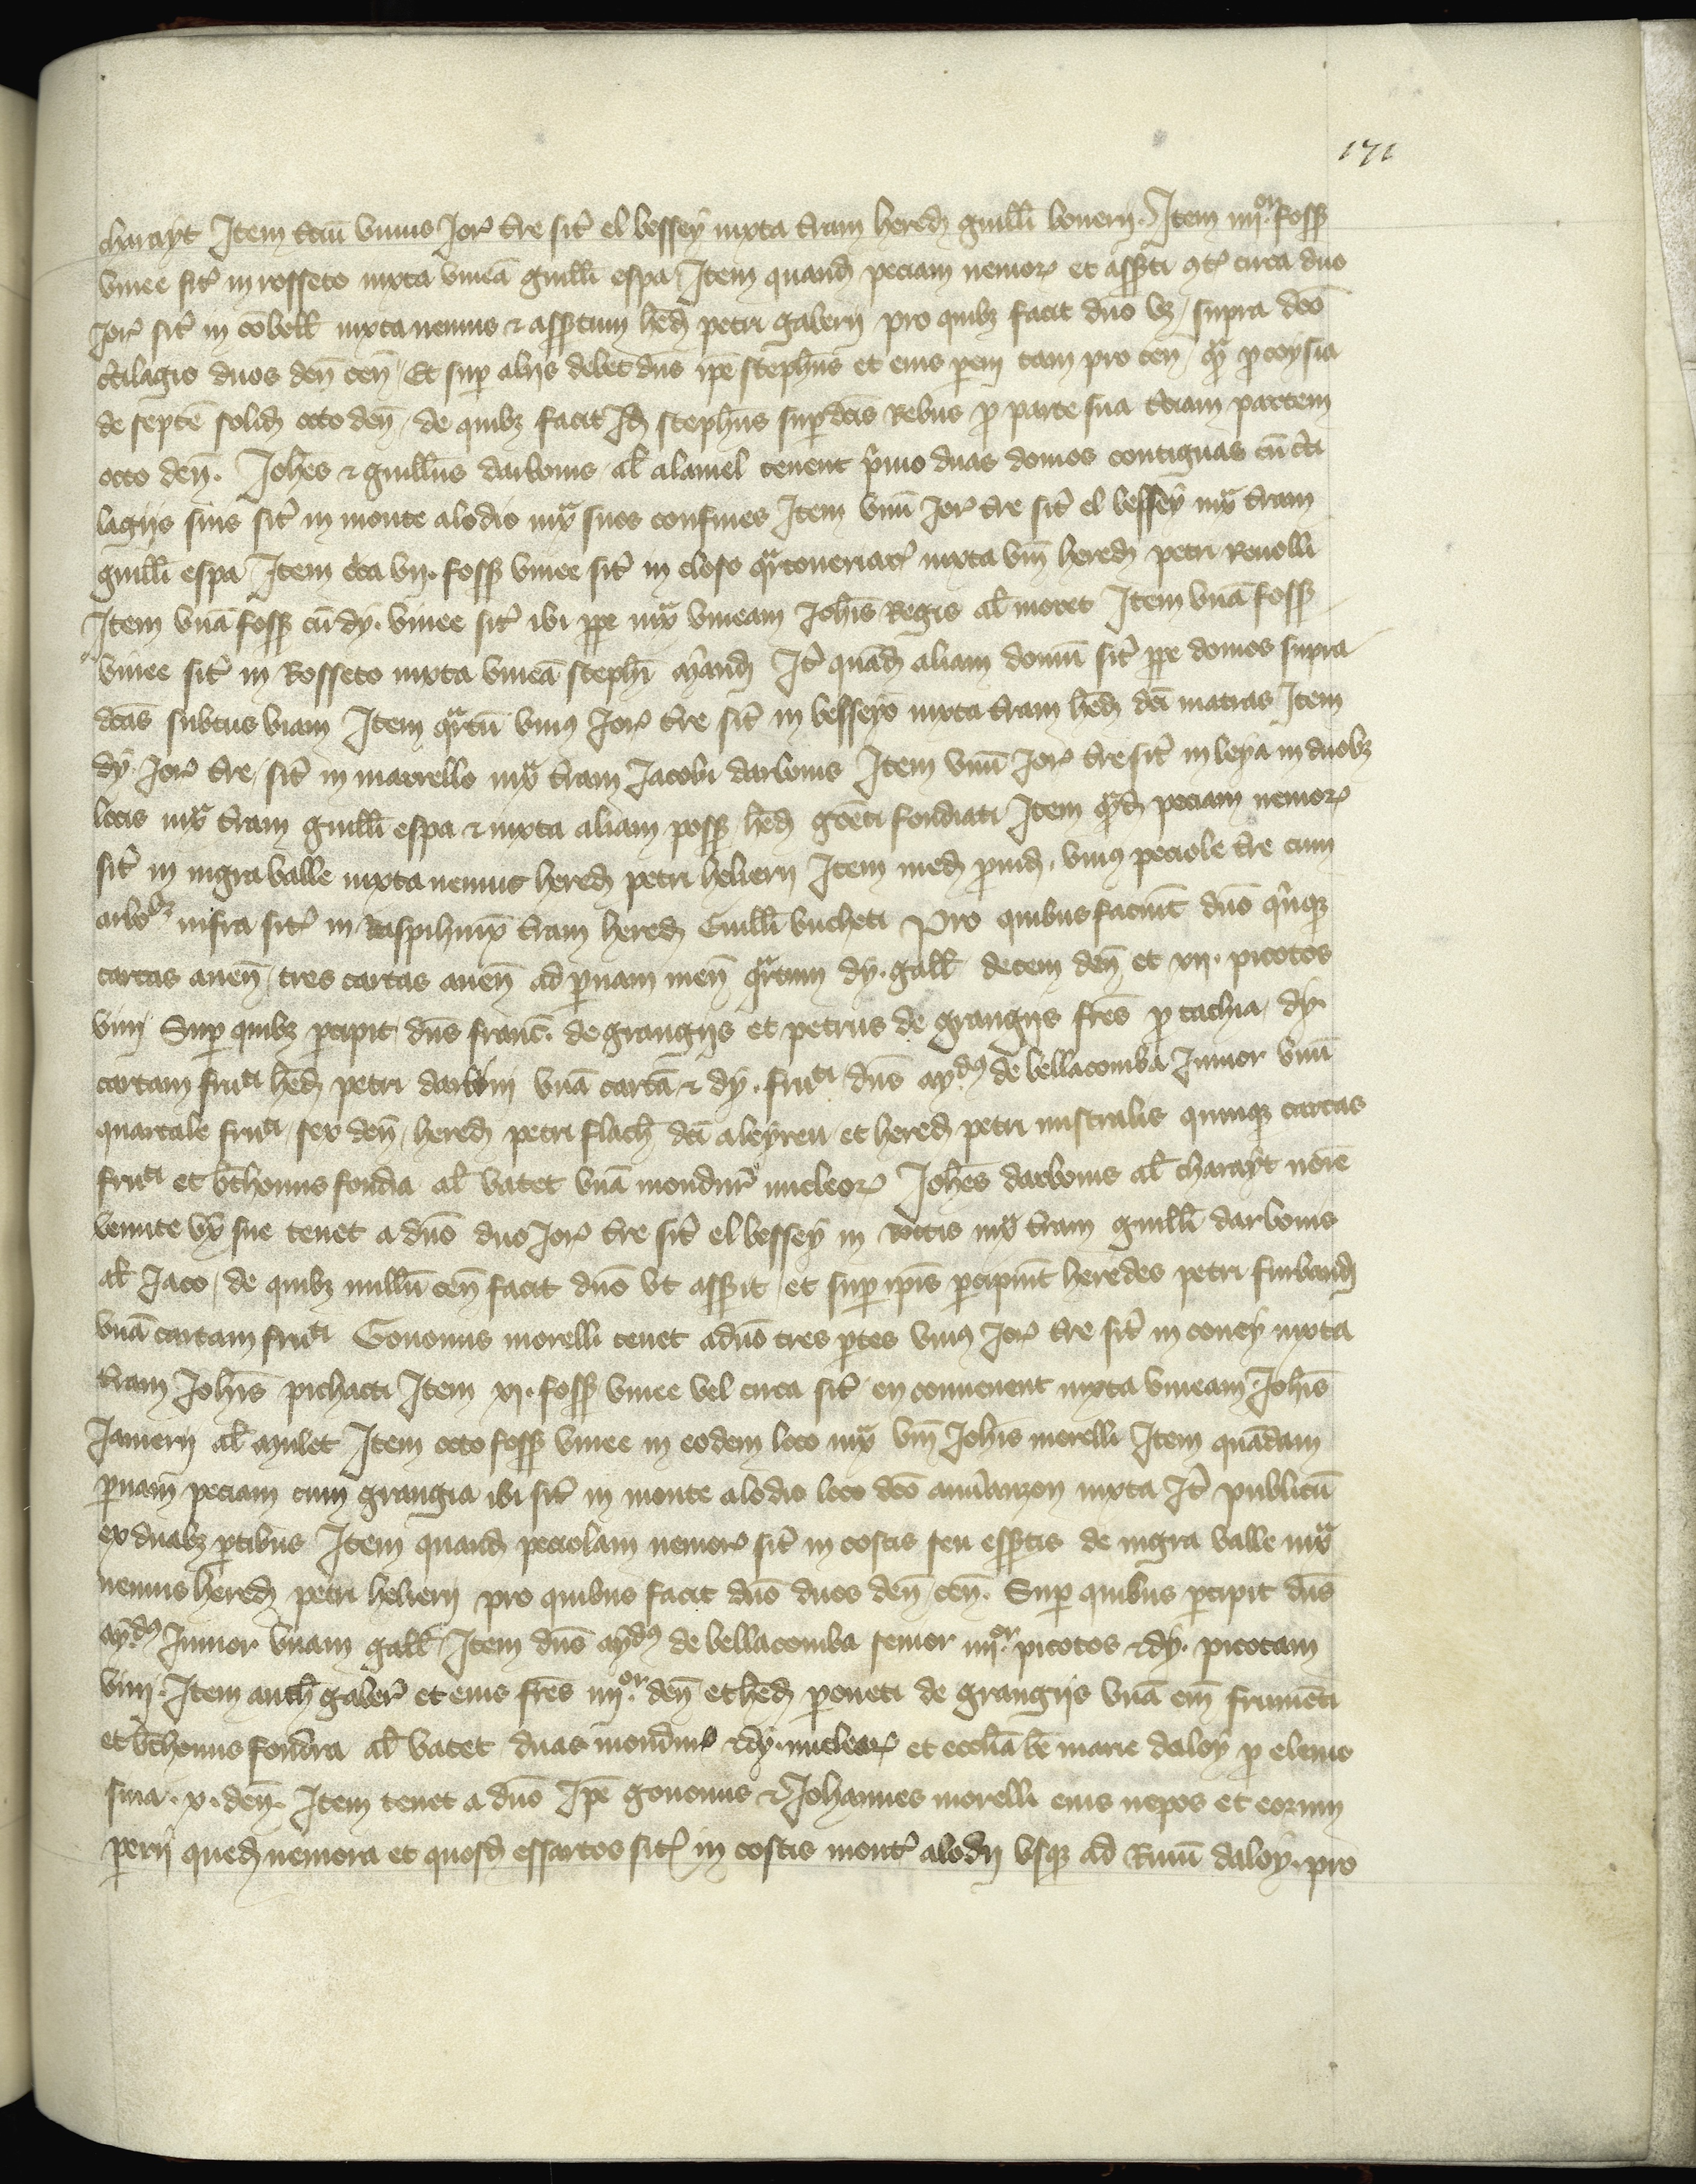 171
charayt Item tciu unius Jor tre sit el bessey iuxta tram hered guilli bonerii. Item iiiior foss
vinee sit in rosseto iuxta vinea guilli espa Item quand peciam nemor et assti circa duo
Jor sit in cobell iuxta nemus & asstum hed petri galerii pro quibz facit dno vz supra dco
ctilagio duos den cen Et sup aliis debet dns ipe stephus et eius pery tam pro cen qa p coysia
de septe solid octo den de quibz facit Id stephus sup dcis Rebus p parte sua tciam partem
octo den. Johes & guillus darbonis al alamel tenent pmo duas domos contiguas cu cti
lagiis suis sit in monte alodio iuxa suos confines Item unu Jor tre sit el bessey iuxa tram
guilli espa Item cca vii. foss vinee sit in closo iuxta vin hered petri Revolli
Item una foss cu dy. vinee sit ibi ppe iuxa vineam Johis Regis al moret Item una foss
vinee sit in Rosseto iuxta vinea stephi aynard It quad aliam domu sit ppe domos supra
dcas subtus viam Item qartu unius Jor tre sit in besseyo iuxta tram hed dci matras Item
dy. Jor tre sit in marrello iuxa tram Jacobi darbonis Item unu Jor tre sit in leya in duobz
locis iuxa tram guilli espa & iuxta aliam poss hed goeti fondrati Item qad peciam nemor
sit in nigra valle iuxta nemus hered petri helierii Item med pind. unius peciole tre cum
arbobz infra sit in tram hered Guilli bucheti Pro quibus faciut dno qinqz
cartas aven tres cartas aven ad pvam men qartum dy. gall decem den et xii. picotos
vini Sup quibz pcipit dns franc. de grangiis et petrus de grangiis fres p tachia dy.
cartam fruti hed petri darbonii una carta & dy. fruti dns aydus de bellacomba Junior unu
quartale fruti sex den hered petri flach dci aleyreu et hered petri mistralis quinqz cartas
fruti et bthonus fondra al vatet una mondur nucleor Johes darbonis al charayt noie
venute ux sue tenet a dno duo Jor tre sit el bessey in rottis iuxa tram guilli darbonis
al Jaco de quibz nullu cen facit dno ut asserit et sup ipis pcipiut heredes petri
una cartam fruti Gononus morelli tenet a dno tres ptes unius Jor tre sit in coney iuxta
tram Johis pichatti Item xi. foss vinee vel circa sit en convenent iuxta vineam Johis
Jamerii al aynlet Item octo foss vinee in eodem loco iuxa vin Johis morelli Item quadam
pvam peciam cum grangia ibi sit in monte alodio loco dco iuxta It publicu
ex duabz ptibus Item quand peciolam nemor sit in costis seu esstis de nigra valle iuxa
nemus hered petri helierii pro quibus facit dno duos den cen. Sup quibus pcipit dns
aydus Junior unam gall Item dns aydus de bellacomba senior iiiior picotos & dy. picotam
vini. Item anth galer et eius fres iiiior den et hed poneti de grangiis una em frumeti
et bthonus fondra al vatet duas mondur & dy. nucleor et ecclia be marie daloy p elemo
sina. v. den. Item tenet a dno Ipe gononus & Johannes morelli eius nepos et eorum
perii qued nemora et quosd essartos sit in costis mont alodii usqz ad Rivu daloy. pro